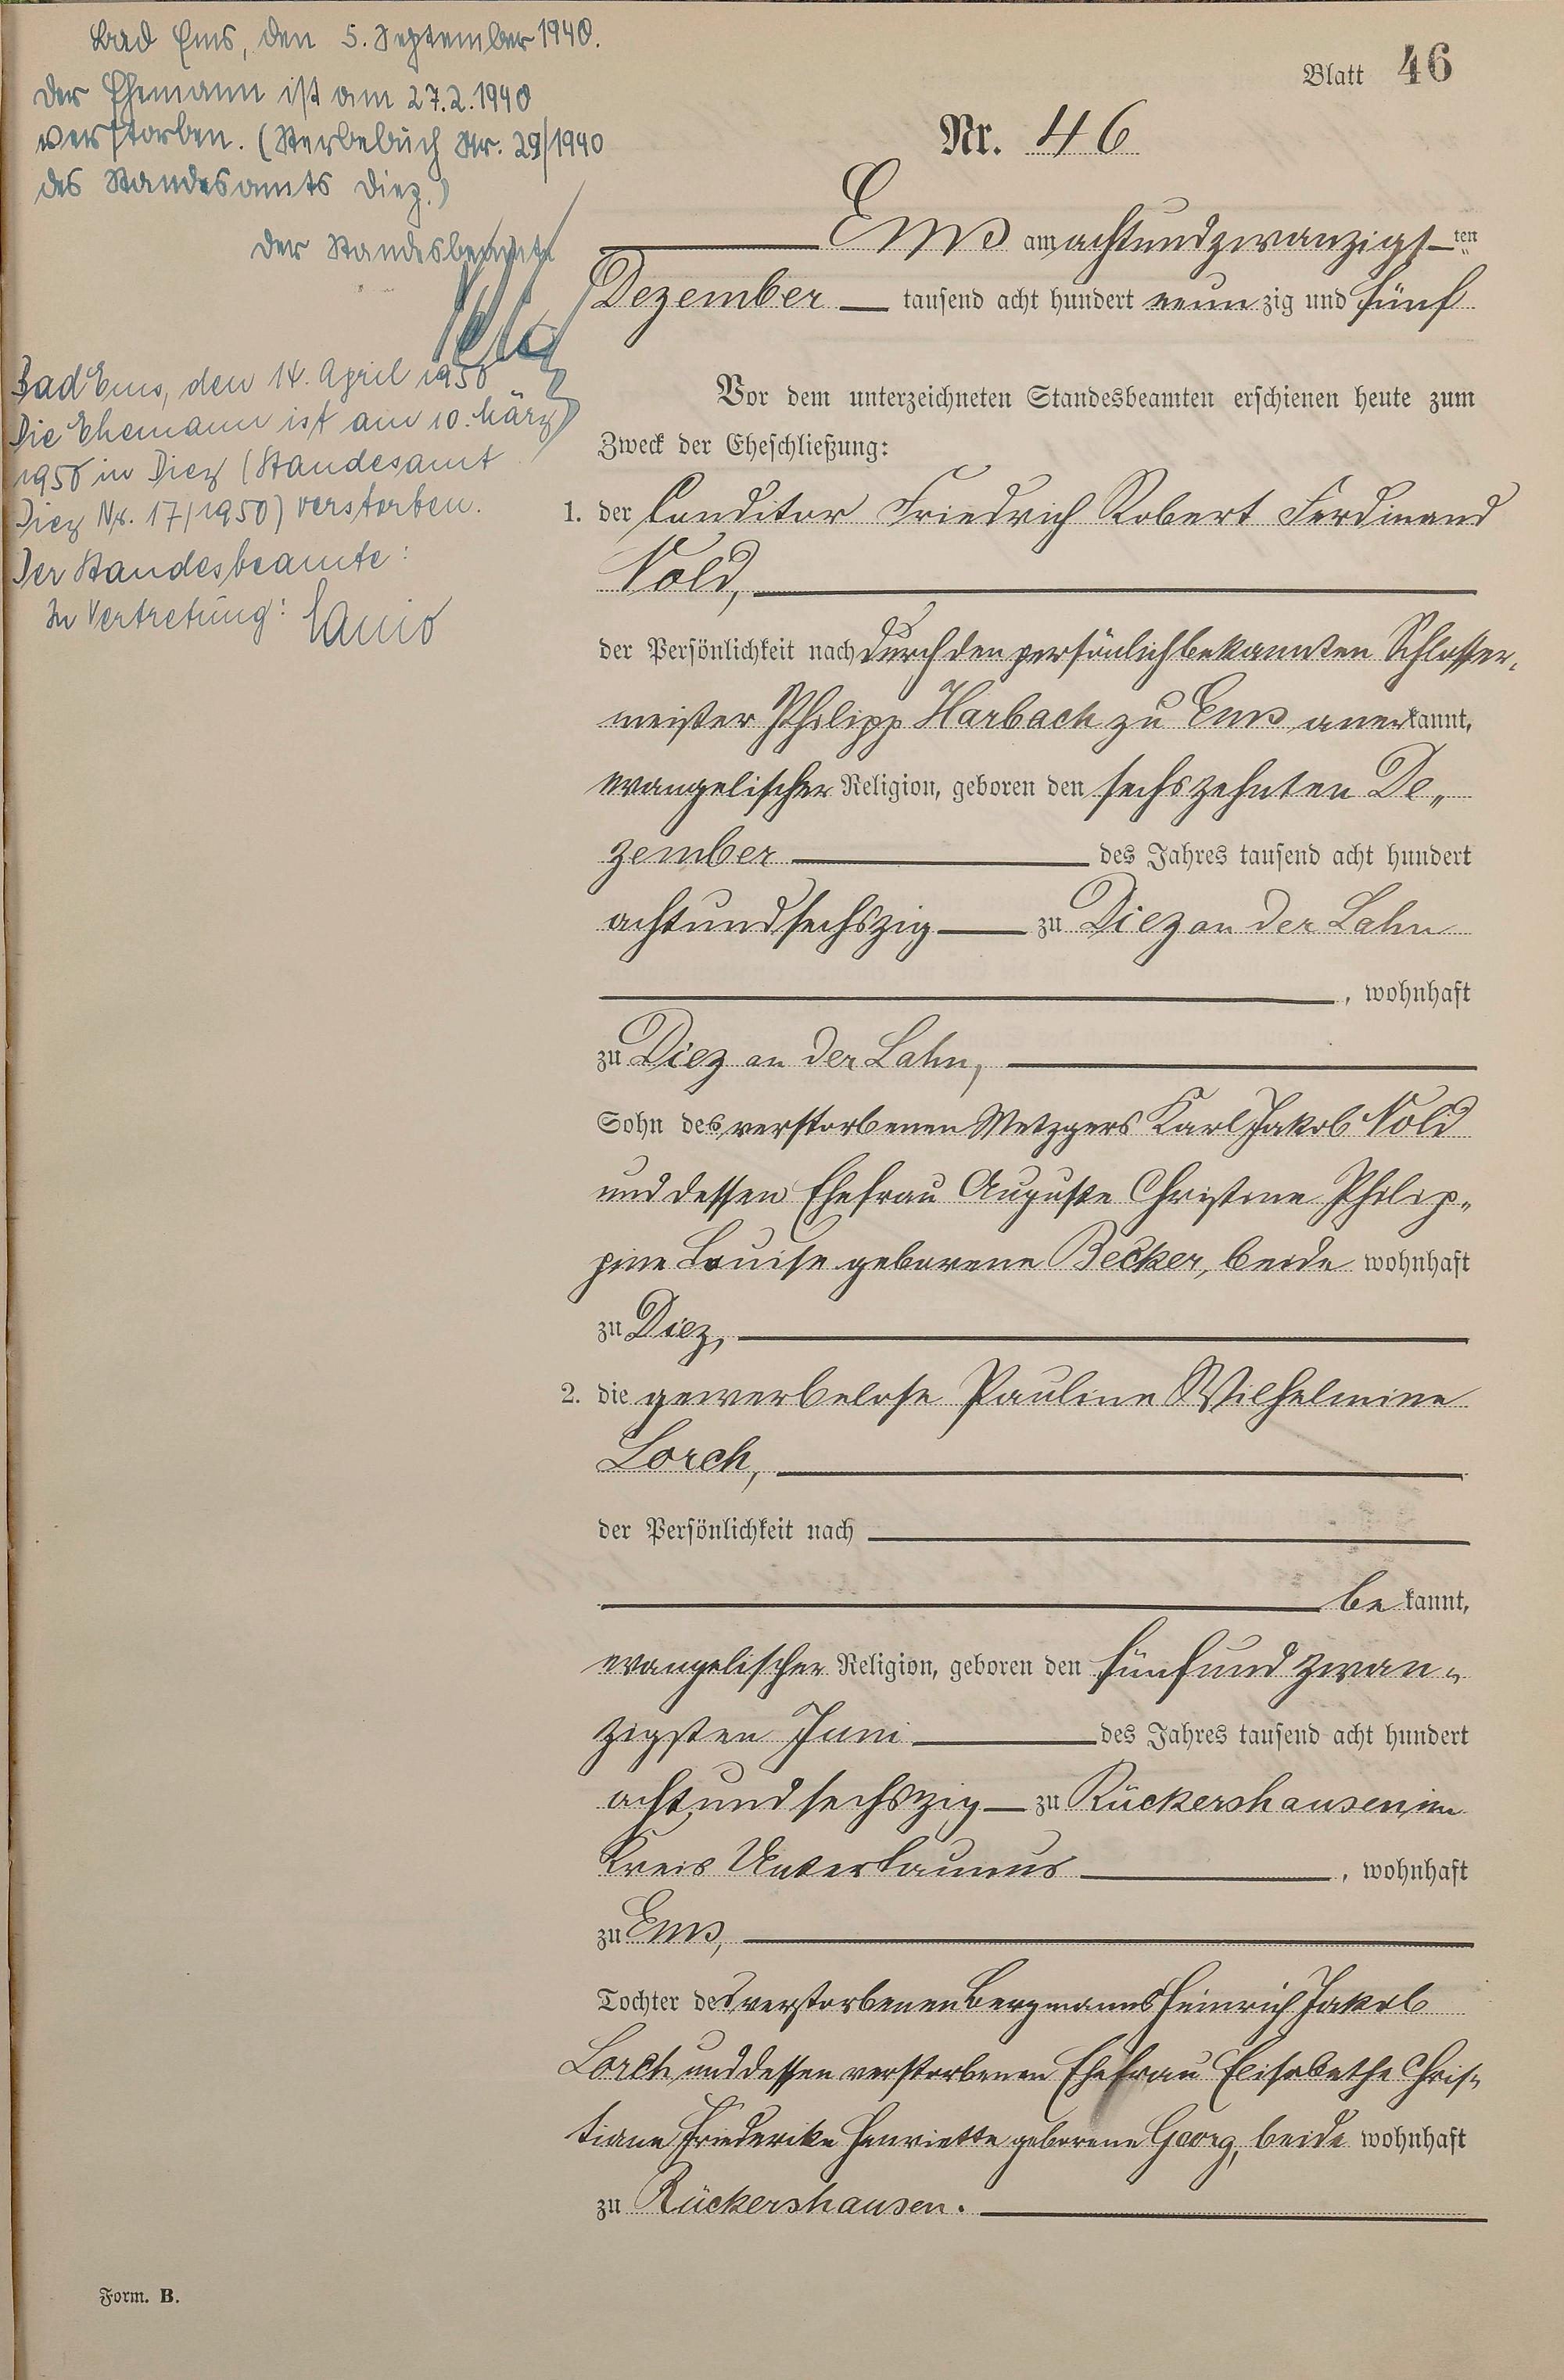 Bad Ems, den 5. September 1940.
Der Ehemann ist am 27.2.1940
verstorben. (Sterbebuch Nr. 29/1940
des Standesamts Diez.)
Der Standesbeamte
Bad Ems, den 14. April 1950
Die Ehemann ist am 10. März
1950 in Diez (Standesamt
Diez Nr. 17/1950) verstorben.
Der Standesbeamte:
In Vertretung:
Blatt 46
Nr. 46
Ems am achtundzwanzigsten
Dezember tausend acht hundert neunzig und fünf
Vor dem unterzeichneten Standesbeamten erschienen heute zum
Zweck der Eheschließung:
1. der Conditor Friedrich Robert Ferdinand
Nold,
der Persönlichkeit nach durch den persönlich bekannten Schlosser-
meister Philipp Harbach zu Ems anerkannt,
evangelischer Religion, geboren den sechszehnten De-
zember des Jahres tausend acht hundert
achtundsechszig zu Diez an der Lahn
, wohnhaft
zu Diez an der Lahn,
Sohn des verstorbenen Metzgers Karl Jakob Nold
und dessen Ehefrau Auguste Christine Philip-
pine Louise geborene Becker, beide wohnhaft
zu Diez,
2. die gewerbelose Pauline Wilhelmine
Lorch,
der Persönlichkeit nach
bekannt,
evangelischer Religion, geboren den fünfundzwan-
zigsten Juni des Jahres tausend acht hundert
achtundsechszig zu Rückershausen im
Kreis Untertaunus, wohnhaft
zu Ems,
Tochter des verstorbenen Bergmanns Heinrich Jakob
Lorch und dessen verstorbenen Ehefrau Elisabethe Chris-
tiane Friederike Henriette geborene Georg, beide wohnhaft
zu Rückershausen.
Form. B.